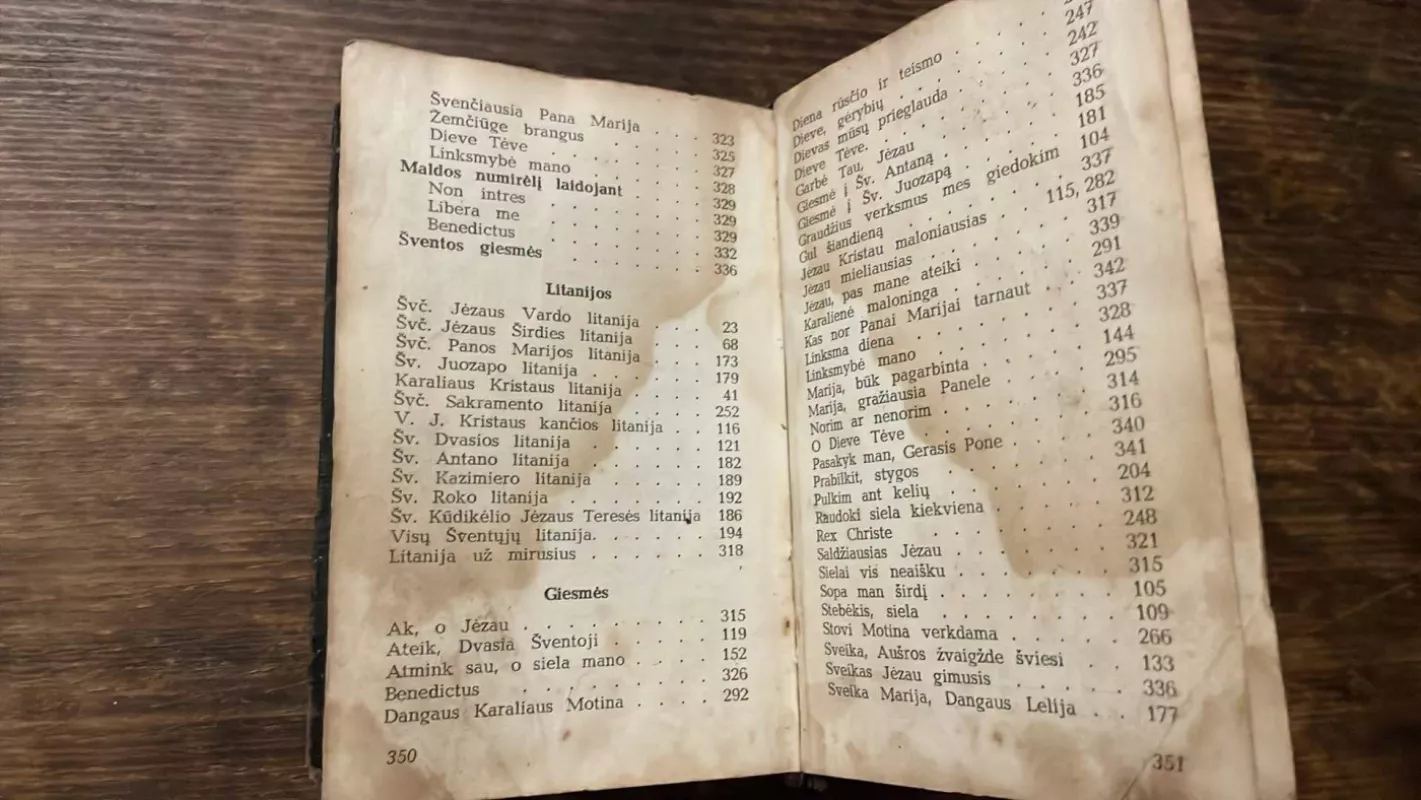 Švenčiausia Pana Marija . . . 323
Žemčiūge brangus . . . . . 325
Dieve Tėve . . . . . . . 327
Linksmybė mano . . . . . 328
Maldos numirėlį laidojant . . . 329
Non intres . . . . . . . 329
Libera me . . . . . . . 329
Benedictus . . . . . . . 332
Šventos giesmės . . . . . . 336
Litanijos
Švč. Jėzaus Vardo litanija . . . 23
Švč. Jėzaus Širdies litanija . . . 68
Švč. Panos Marijos litanija . . . 173
Šv. Juozapo litanija . . . . . 179
Karaliaus Kristaus litanija . . . . 41
Švč. Sakramento litanija . . . . 252
V. J. Kristaus kančios litanija . . 116
Šv. Dvasios litanija . . . . . 121
Šv. Antano litanija . . . . . 182
Šv. Kazimiero litanija . . . . . 189
Šv. Roko litanija . . . . . . 192
Šv. Kūdikėlio Jėzaus Teresės litanija 186
Visų Šventųjų litanija. . . . . 194
Litanija už mirusius . . . . . 318
Giesmės
Ak, o Jėzau . . . . . . . . 315
Ateik, Dvasia Šventoji . . . . . 119
Atmink sau, o siela mano . . . . 152
Benedictus . . . . . . . . . 326
Dangaus Karaliaus Motina . . . . 292
350
Diena rūsčio ir teismo . . . .
Dieve, gėrybių . . . . . . . 247
Dievas mūsų prieglauda . . . . 242
Dieve Tėve. . . . . . . . 327
Garbė Tau, Jėzau . . . . . . 336
Giesmė į Šv. Antaną . . . . . 185
Giesmė į Šv. Juozapą . . . . . 181
Graudžius verksmus mes giedokim 104
Gul šiandieną . . . . . . . 337
Jėzau Kristau maloniausias . . 115, 282
Jėzau mieliausias . . . . . . 317
Jėzau, pas mane ateiki . . . . 339
Karalienė maloninga . . . . . 291
Kas nor Panai Marijai tarnaut . . 342
Linksma diena . . . . . . . 337
Linksmybė mano . . . . . . 328
Marija, būk pagarbinta . . . . 144
Marija, gražiausia Panele . . . . 295
Norim ar nenorim . . . . . . 314
O Dieve Tėve . . . . . . . 316
Pasakyk man, Gerasis Pone . . . . 340
Prabilkit, stygos . . . . . . 341
Pulkim ant kelių . . . . . . 204
Raudoki siela kiekviena . . . . . 312
Rex Christe . . . . . . . 248
Saldžiausias Jėzau . . . . . . 321
Sielai vis neaišku . . . . . . 315
Sopa man širdį . . . . . . . 105
Stebėkis, siela . . . . . . . 109
Stovi Motina verkdama . . . . . 266
Sveika, Aušros žvaigžde šviesi . . 133
Sveikas Jėzau gimusis . . . . . 336
Sveika Marija, Dangaus Lelija . . . 177
351